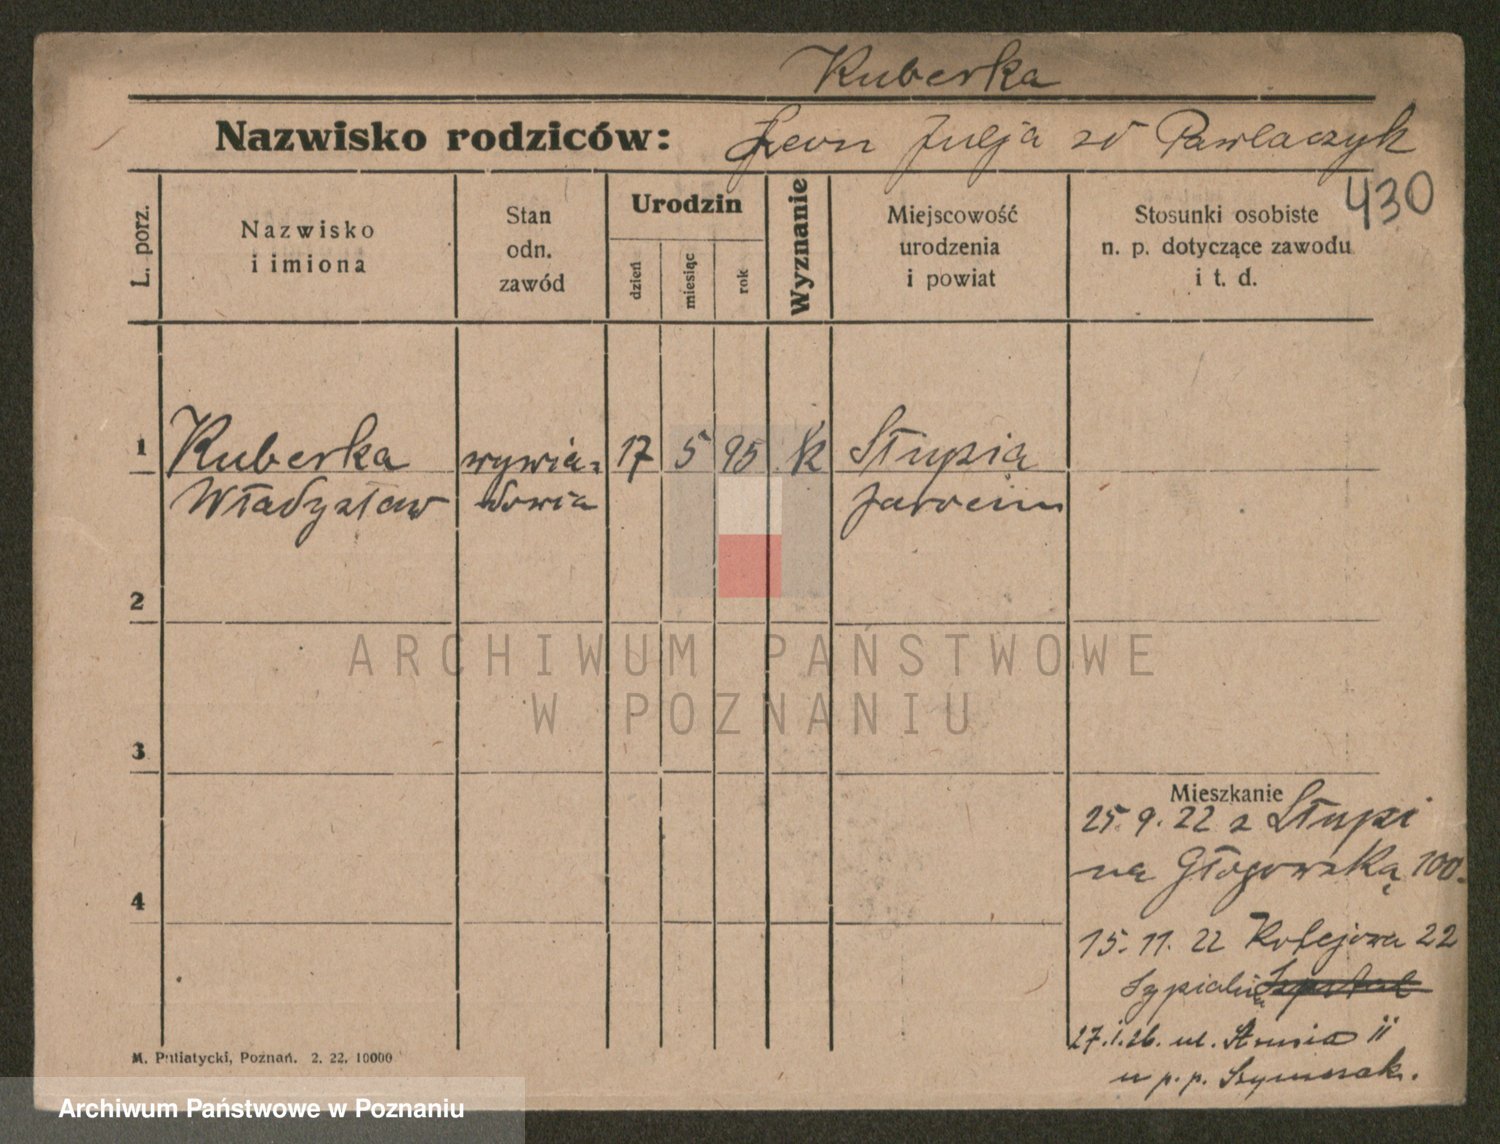 Kuberka
Nazwisko rodziców: Leon Julja zd Pawlaczyk
430
L. porz.
Nazwisko
i imiona
Stan
odn.
zawód
Urodzin
dzień
miesiąc
rok
Wyznanie
Miejscowość
urodzenia
i powiat
Stosunki osobiste
n. p. dotyczące zawodu
i t. d.
1
Kuberka wywia- 17 5 95 k Słupia
Władysław dowca Jarocin
2
3
4
Mieszkanie
25. 9. 22 z Słupi
na Głogowską 100.
15. 11. 22 Kolejowa 22
27. 1. 26. ul. 11
u p. p. Szymczak.
M. Putiatycki, Poznań. 2. 22. 10000
ARCHIWUM PAŃSTWOWE
W POZNANIU
Archiwum Państwowe w Poznaniu